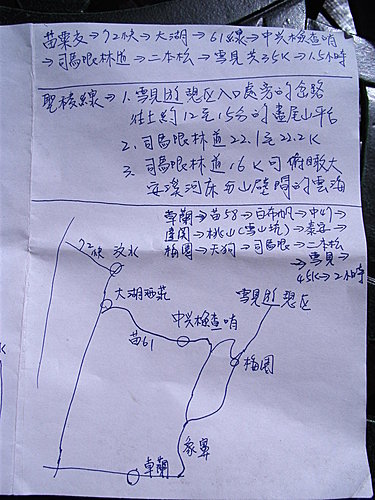 苗栗交→72快→大湖→61線→中兴檢查哨
→司馬限林道→二本松→雪見 共35K→1.5小時
聖稜線→1.雪見遊憩区入口處旁的岔路
往上約12至15分的盡尾山平台
2.司馬限林道 22.1至22.2K
3.司馬限林道16K可俯瞰大
安溪河床与山壁間的雲海
卓蘭→苗58→白布帆→中47→
達関→桃山(雪山坑)→泰安→
梅園→天狗→司馬限→二本松
→雪見→
45K→2小時
72快 汶水
大湖酒莊
雪見遊憩区
中兴檢查哨
苗61
梅園
象鼻
卓蘭